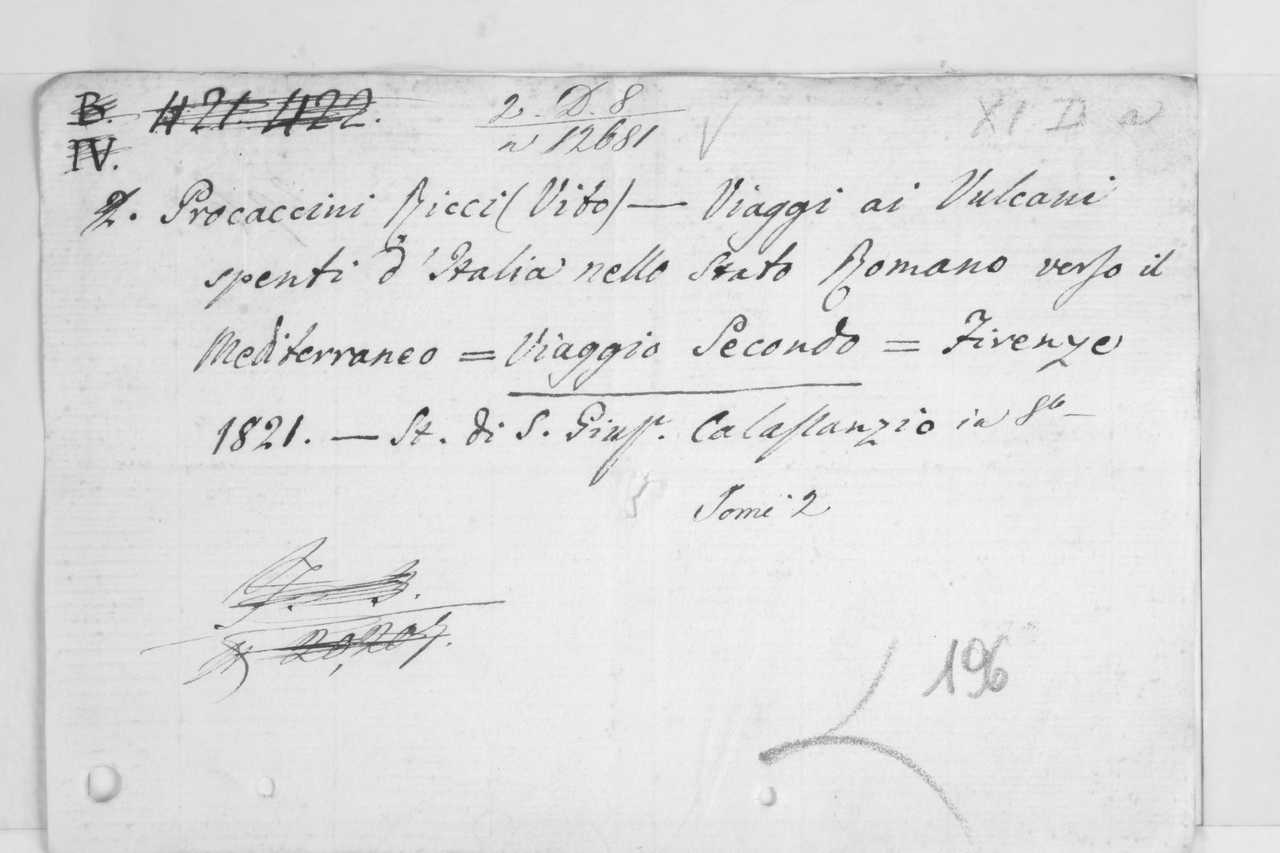 B. 421. 422.
IV.
2. D. 8
n 12681
XI D a
2. Procaccini Ricci (Vito) — Viaggi ai Vulcani
spenti d'Italia nello Stato Romano verso il
Mediterraneo = Viaggio Secondo = Firenze
1821. — St. di S. Giusp. Calassanzio in 8º —
Tomi 2
20,207.
196